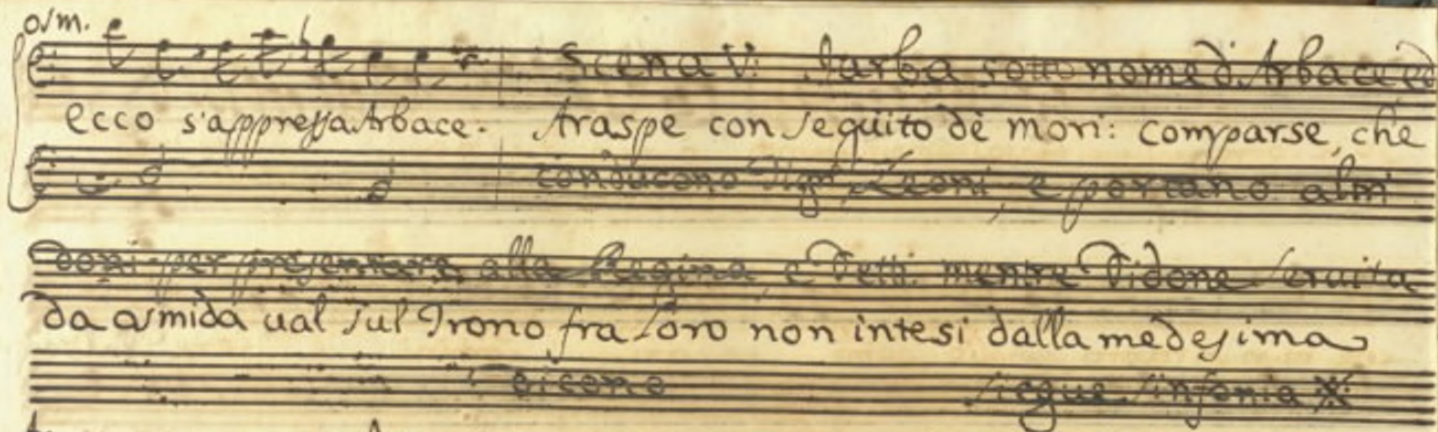 osm.
Scena V: Iarba sotto nome d'Arbace ed
ecco s'appressa Arbace. Araspe con seguito dè mori: comparse, che
conducono Tigri, Leoni, e portano altri
doni per presentare alla Regina, e Detti. mentre Didone servita
da osmida val sul Trono fra loro non intesi dalla medesima
dicono siegue sinfonia